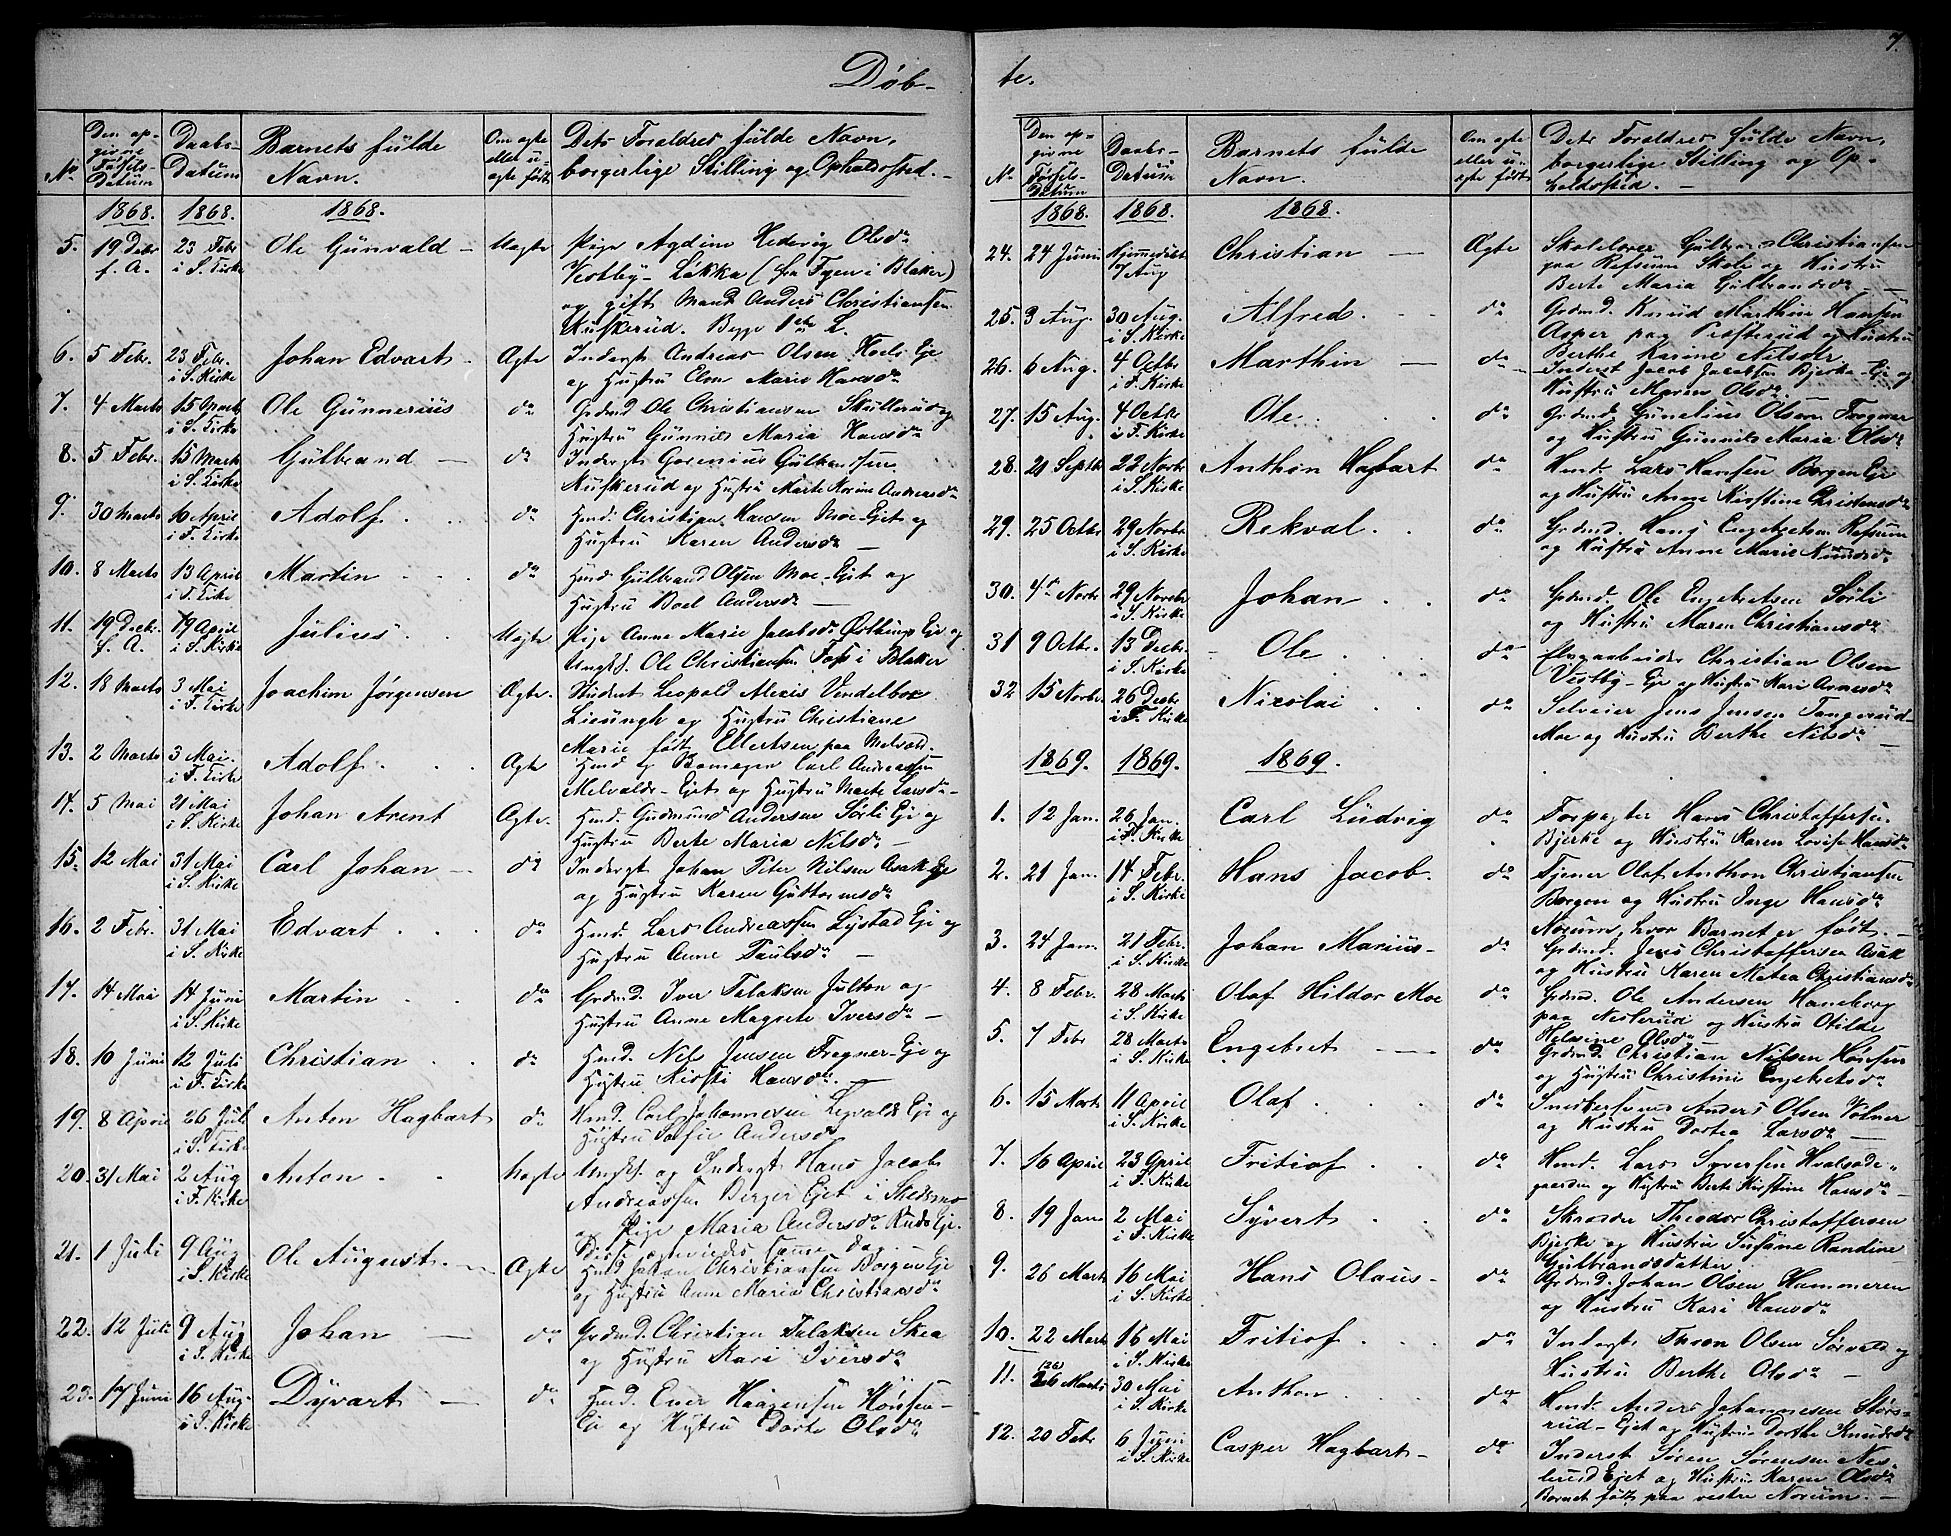 Døb-
No
Den op-
givne
Fødsels-
Datum
Daabs-
Datum
Barnets fulde
Navn.
Om ægte
eller u-
ægte født
Dets Forældres fulde Navn,
borgerlige Stilling og Opholdssted.
1868. 1868. 1868.
5. 19 Decbr 23 Febr Ole Günvald - Uægte Pige Agdine Hedevig Olsdr
f. A. i S. Kirke Vestby- Løkka (fra Fyen i Blaker)
og gift Mand Anders Christiansen
Kuskerud. Begges 1ste L.
6. 5 Febr. 23 Febr. Johan Edvart. Ægte Inderst Andreas Olsen Eje
i S. Kirke og Hustru Elen Marie Hansdr
7. 4 Marts 15 Marts Ole Günnerius do Grdmd Ole Christiansen Skullerud og
i S. Kirke Hustru Günnild Maria Hansdr
8. 5 Febr. 15 Marts Gulbrand - do Inderst Gorenius Gulbrandsen
i S. Kirke Kuskerud og Hustru Marte Karine Andreasdr
9. 30 Marts 10 April Adolf. do Hmd. Christian Hansen Moe-Ejet og
i F. Kirke Hustru Karen Andersdr
10. 8 Marts 13 April Martin do Hmd Gulbrand Olsen Moe-Ejet og
i F. Kirke Hustru Boel Andersdr
11. 19 Decbr. 19 April Julius. Uægte Pige Anne Marie Jacobsdr Østbings Eje og
f. A. i S. Kirke Ungk. Ole Christiansen Foss i Blaker
12. 18 Marts 3 Mai Joachim Jørgensen Ægte. Student Leopold Alexis Vendelboe
i F. Kirke Liesungh og Hustru Christiane
Marie født Ellertsen paa Melvold.
13. 2 Marts 3 Mai. Adolf. Ægte Hmd og Carl Andreassen
i F. Kirke Melvolds-Ejet og Hustru Marte Larsdr
14. 5 Mai 21 Mai Johan Arent Ægte. Hmd. Gudmund Andersen Sørli Eje og
i S. Kirke Hustru Berte Maria Nilsdr
15. 12 Mai 31 Mai Carl Johan do Inderst Johan Peter Nilsen Asak Eje
i S. Kirke og Hustru Karen Guttormsdr
16. 2 Febr. 31 Mai Edvart do Hmd. Lars Andreassen Lystad Eje og
i S. Kirke Hustru Anne Paulsdr
17. 14 Mai 14 Juni Martin do Grdmd. Iver Talaksen Julton og
i S. Kirke Hustru Anne Magrete Iversdr
18. 10 Juni 12 Juli Christian do Hmd. Nils Jensen Frogner-Eje og
i F. Kirke Hustru Kirsti Hansdr.
19. 8 April 26 Juli Anton Hagbart do Hmd. Carl Johannesen Eje og
i S. Kirke Hustru Sofie Andersdr
20. 31 Mai 2 Aug Anton Uægte Ungk. og Inderst Hans Jacob
i F. Kirke Andreassen Berger Ejet i Skedsmo
og Pige Maria Andersdr Ruds Eje.
21. 1 Juli 9 Aug Ole August. Ægte Hmd Johan Christiansen Borgen Eje
i S. Kirke og Hustru Anne Marie Christiansdr
22. 12 Juli 9 Aug Johan - do Grdmd. Christian Talaksen Skea
i S. Kirke og Hustru Kari Iversdr
23. 17 Juni 16 Aug. Dyvart - do Hmd. Ener Haagensen Hønsen-
i S. Kirke Eje og Hustru Dorte Olsdr
te.
7.
No
Den op-
givne
Fødsels-
Datum
Daabs-
Datum
Barnets fulde
Navn.
Om ægte
eller u-
ægte født
Dets Forældres fulde Navn,
borgerlige Stilling og Op-
holdssted.
1868. 1868. 1868.
24. 24 Juni Hjemmedøbt Christian Ægte Skolelærer Gulbran Christiansen
7 Aug paa Refsum Skole og Hustru
Berte Maria Gulbrandsdr
25. 3 Aug. 30 Aug. Alfred. do Grdmd. Knud Marthin Hansen
i S. Kirke Asper paa og Hustru
Berthe Karine Nilsdr
26. 6 Aug. 4 Octbr Marthin - do Inderst Jacob Jacobsen Bjerke-Eje og
i F. Kirke Hustru Maren Olsdr
27. 15 Aug. 4 Octbr Ole do Grdmd. Gunelius Olsen Frogner
i F. Kirke og Hustru Günnild Maria Olsdr
28. 21 Septbr 22 Novbr Anthon Hagbart do Hmd. Lars Hansen Borgen Eje
i S. Kirke og Hustru Anne Kirstine Christensdr
29. 25 Octbr 29 Novbr Rekval do Grdmd. Hans Engebretsen Refsum
i S. Kirke og Hustru Anne Marie
30. 4de Novbr 29 Novbr Johan do Grdmd. Ole Engebretsen Sørli
i S. Kirke og Hustru Maren Christiansdr
31 9 Octbr. 13 Decbr. Ole do Christian Olsen
i S. Kirke Vestby-Eje og Hustru Kari Arnesdr
32 15 Novbr 26 Decbr Nicolai do Selveier Jens Jensen Tangerud-
i F. Kirke Moe og Hustru Berthe Nilsdr
1869. 1869. 1869.
1. 12 Jan. 26 Jan. Carl Ludvig do Forpagter Hans Christoffersen
i F. Kirke Bjerke og Hustru Karen Lovise Hansdr
2. 21 Jan. 14 Febr. Hans Jacob. do Tjener Olaf Anthon Christiansen
i S. Kirke Borgen og Hustru Inge Hansdr
Norum, hvor Barnet er født.
3. 24 Jan. 21 Febr. Johan Marius- do Grdmd. Jens Christoffersen Asak
i S. Kirke og Hustru Karen Matea Christiansdr
4. 8 Febr. 28 Marts Olaf Hildor Moe do Grdmd. Ole Andersen Haneborg
i S. Kirke paa Neslerud og Hustru Otilde
Helasine Olsdr
5. 7 Febr 28 Marts Engebret do Grdmd. Christian Nilsen Hønsen
i S. Kirke og Hustru Christine Engebretsdr
6. 15 Marts 11 April Olaf do Snedkersvend Anders Olsen Volner
i S. Kirke og Hustru Dortea Larsdr
7. 16 April 23 April Fritiof do Hmd. Lars Syversen Hvalsøde-
i F. Kirke gaarden og Hustru Berte Kirstine Hansdr
8. 19 Jan. 2 Mai Syvert do Skræder Theodor Christoffersen
i F. Kirke Bjerke og Hustru Susane Randine
Gulbrandsdatter.
9. 26 Marts 16 Mai Hans Olaus- do Grdmd. Johan Olsen Hammeren
i S. Kirke og Hustru Kari Hansdr
10. 22 Marts 16 Mai Fritiof do Inderst Thron Olsen Sørvald og
i S. Kirke Hustru Berthe Olsdr
11. (26) 26 Marts 30 Mai Anthon do Hmd. Anders Johannesen Stors-
i S. Kirke rud-Ejet og Hustru Dorthe Knudsdr
12. 20 Febr 6 Juni Casper Hagbart- do Inderst Søren Sørensen Nes-
i S. Kirke lerud Ejet og Hustru Karen Olsdr
Barnet født paa vestre Norum.